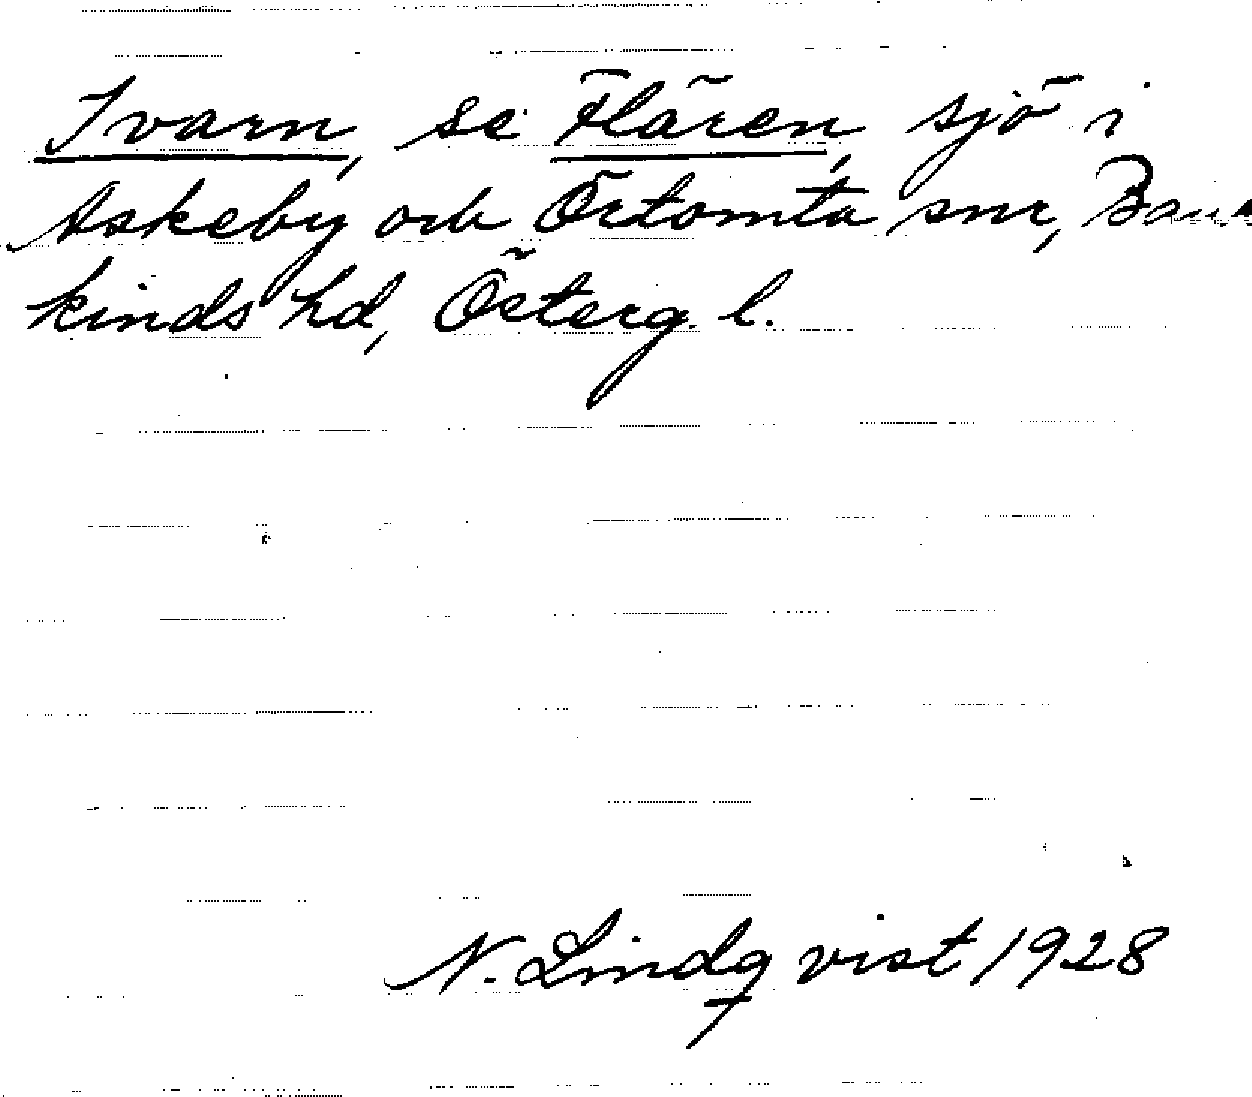 Ivarn, se Flären, sjö i
Askeby och Örtomta snr, Bank
kinds hd, Österg. l.
N. Lindqvist 1928